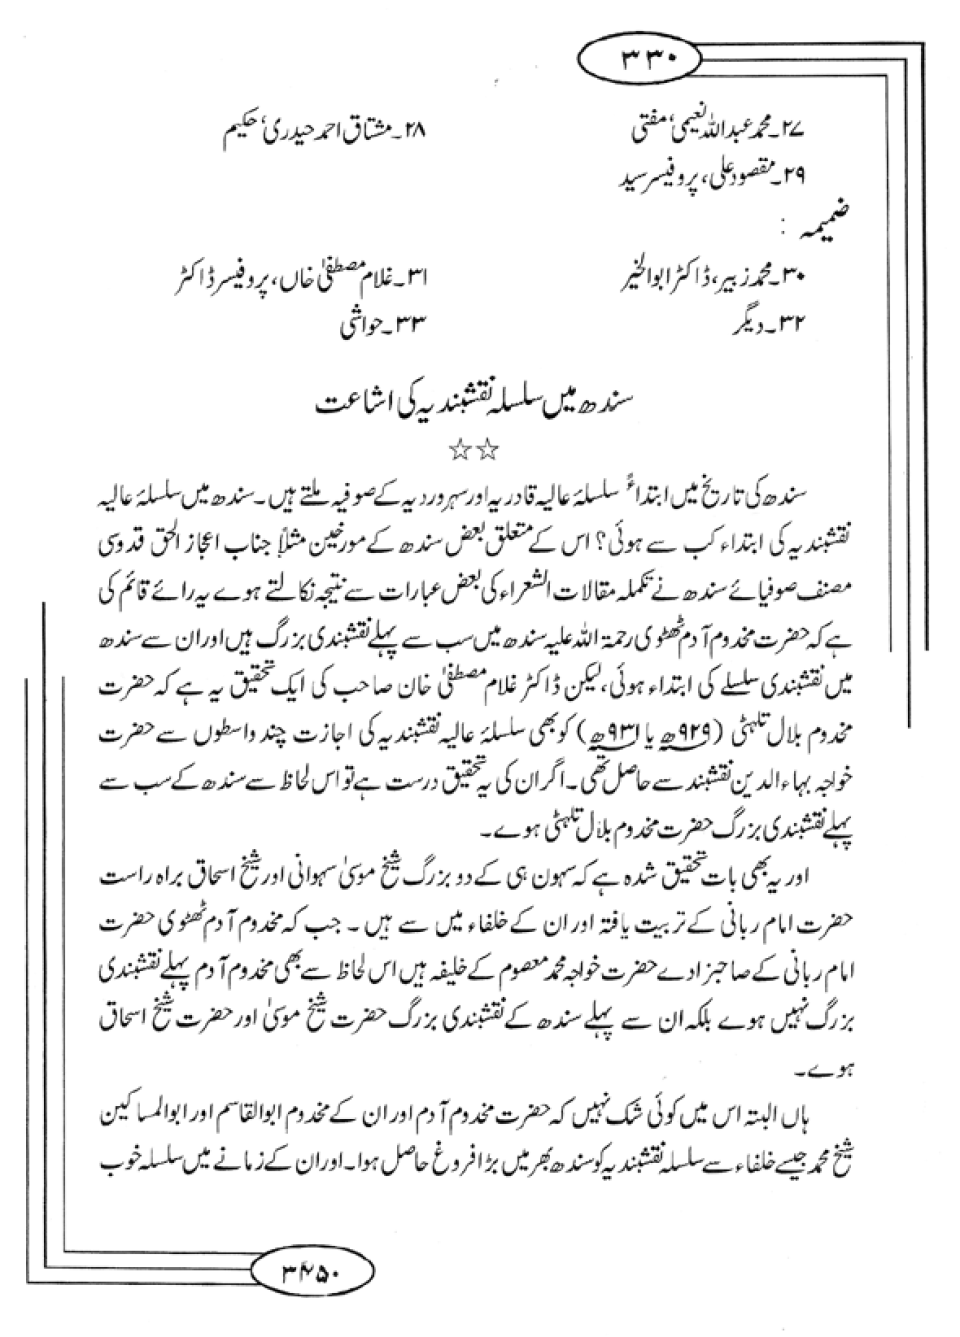 ۳۳۰
۲۷۔محمد عبداللہ نعیمی، مفتی ۲۸۔مشتاق احمد حیدری، حکیم
۲۹۔مقصود علی، پروفیسر سید
ضمیمہ :
۳۰۔محمد زبیر، ڈاکٹر ابوالخیر ۳۱۔غلام مصطفیٰ خاں، پروفیسر ڈاکٹر
۳۲۔دیگر ۳۳۔حواشی
سندھ میں سلسلہ نقشبندیہ کی اشاعت
☆☆
سندھ کی تاریخ میں ابتداءً سلسلۂ عالیہ قادریہ اور سہروردیہ کے صوفیہ ملتے ہیں۔ سندھ میں سلسلۂ عالیہ
نقشبندیہ کی ابتداء کب سے ہوئی؟ اس کے متعلق بعض سندھ کے مورخین مثلاً جناب اعجاز الحق قدوسی
مصنف صوفیائے سندھ نے تکملہ مقالات الشعراء کی بعض عبارات سے نتیجہ نکالتے ہوے یہ رائے قائم کی
ہے کہ حضرت مخدوم آدم ٹھٹوی رحمۃ اللہ علیہ سندھ میں سب سے پہلے نقشبندی بزرگ ہیں اور ان سے سندھ
میں نقشبندی سلسلے کی ابتداء ہوئی، لیکن ڈاکٹر غلام مصطفیٰ خان صاحب کی ایک تحقیق یہ ہے کہ حضرت
مخدوم بلال تلہٹی (۹۲۹ھ یا ۹۳۱ھ) کو بھی سلسلۂ عالیہ نقشبندیہ کی اجازت چند واسطوں سے حضرت
خواجہ بہاءالدین نقشبند سے حاصل تھی۔ اگر ان کی یہ تحقیق درست ہے تو اس لحاظ سے سندھ کے سب سے
پہلے نقشبندی بزرگ حضرت مخدوم بلال تلہٹی ہوے۔
اور یہ بھی بات تحقیق شدہ ہے کہ سہون ہی کے دو بزرگ شیخ موسیٰ سہوانی اور شیخ اسحاق براہ راست
حضرت امام ربانی کے تربیت یافتہ اور ان کے خلفاء میں سے ہیں ۔ جب کہ مخدوم آدم ٹھٹوی حضرت
امام ربانی کے صاحبزادے حضرت خواجہ محمد معصوم کے خلیفہ ہیں اس لحاظ سے بھی مخدوم آدم پہلے نقشبندی
بزرگ نہیں ہوے بلکہ ان سے پہلے سندھ کے نقشبندی بزرگ حضرت شیخ موسیٰ اور حضرت شیخ اسحاق
ہوے۔
ہاں البتہ اس میں کوئی شک نہیں کہ حضرت مخدوم آدم اور ان کے مخدوم ابوالقاسم اور ابوالمساکین
شیخ محمد جیسے خلفاء سے سلسلہ نقشبندیہ کو سندھ بھر میں بڑا فروغ حاصل ہوا۔ اور ان کے زمانے میں سلسلہ خوب
۳۴۵۰